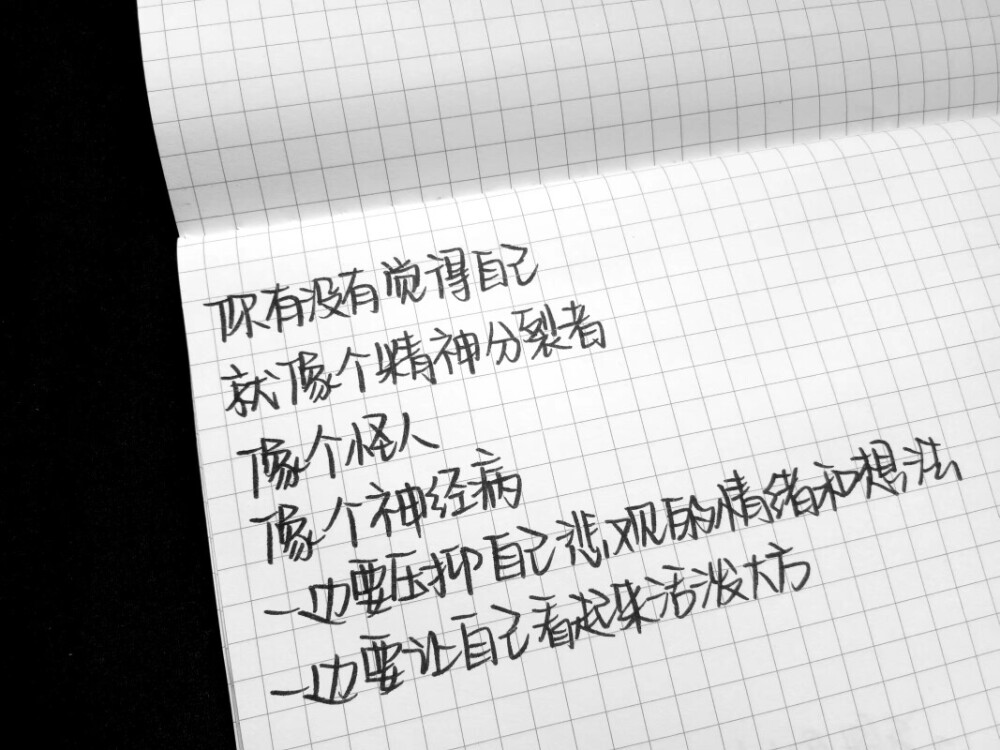 你有没有觉得自己
就像个精神分裂者
像个怪人
像个神经病
一边要压抑自己悲观的情绪和想法
一边要让自己看起来活泼大方